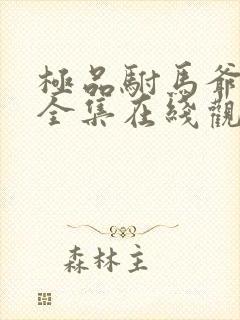 極品駙馬爺
全集在綫觀
森林主